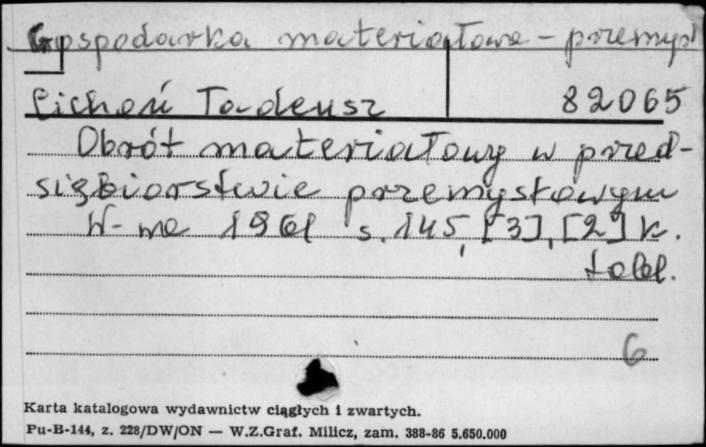 Gospodarka materiałowa - przemysł
Cichoń Tadeusz 82065
Obrót materiałowy w przed-
siębiorstwie przemysłowym
W-wa 1961 s. 145, [3], [2] k.
tabl.
6
Karta katalogowa wydawnictw ciągłych i zwartych.
Pu-B-144, z. 228/DW/ON — W.Z.Graf. Milicz, zam. 388-86 5.650.000